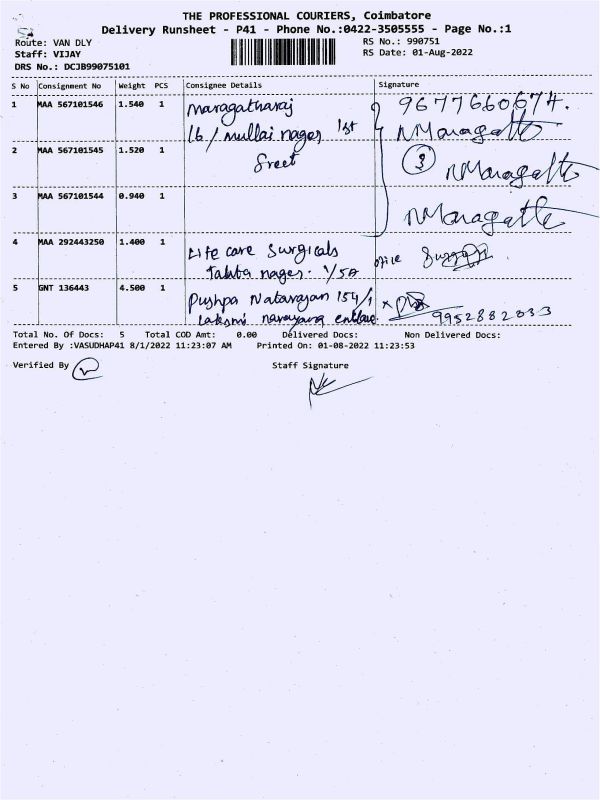 THE PROFESSIONAL COURIERS, Coimbatore
Delivery Runsheet - P41 - Phone No.:0422-3505555 - Page No.:1
Route: VAN DLY
RS No.: 990751
Staff: VIJAY
RS Date: 01-Aug-2022
DRS No.: DCJB99075101
S No Consignment No Weight PCS Consignee Details Signature
1 MAA 567101546 1.540 1 maragatharaj 9677660674.
16/mullai nager 1st
2 MAA 567101545 1.520 1 Sreet 3
3 MAA 567101544 0.940 1
4 MAA 292443250 1.400 1 Life care Surgicals
nager. 1/5A
5 GNT 136443 4.500 1 Pushpa Natarayan 154/1 x
Lakshmi narayana 9952882033
Total No. Of Docs: 5 Total COD Amt: 0.00 Delivered Docs: Non Delivered Docs:
Entered By :VASUDHAP41 8/1/2022 11:23:07 AM Printed On: 01-08-2022 11:23:53
Verified By Staff Signature